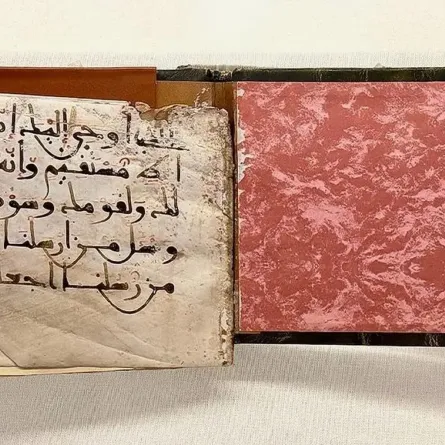 اوحي اليك
مستقيم وانه
لك ولقومك وسو
وسل من ارسلنا
من رسلنا اجعل